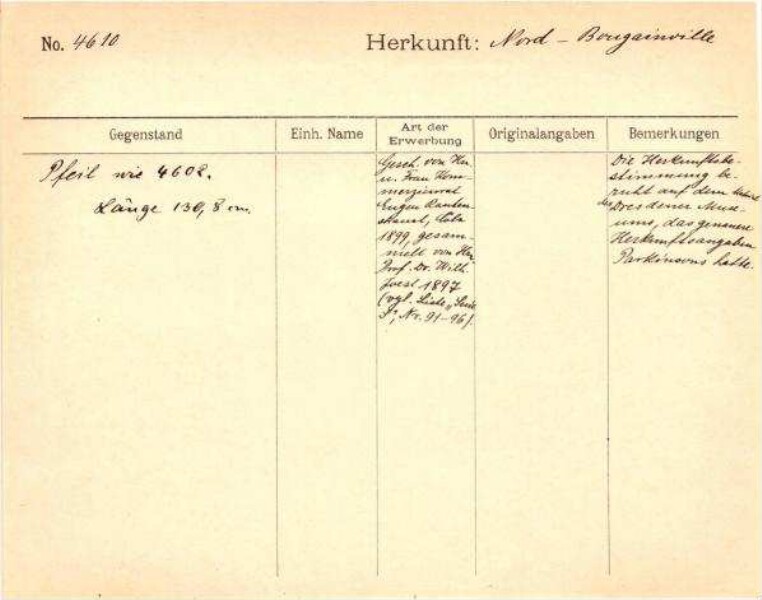 No. 4610
Herkunft: Nord - Bougainville
Gegenstand
Einh. Name
Art der
Erwerbung
Originalangaben
Bemerkungen
Pfeil wie 4602.
Länge 130,8 cm.
Gesch. von Hrn.
u. Frau Kom-
merzienrat
Eugen Rauten-
strauch, Cöln
1899, gesam-
melt von Hrn.
Prof. Dr. Wilh.
Joest 1897
(vgl. Liste „Serie
Nr. 91-96).
Die Herkunftsbe-
stimmung be-
ruht auf dem
des Dresdener Muse-
ums, das genauere
Herkunftsangaben
Parkinsons hatte.